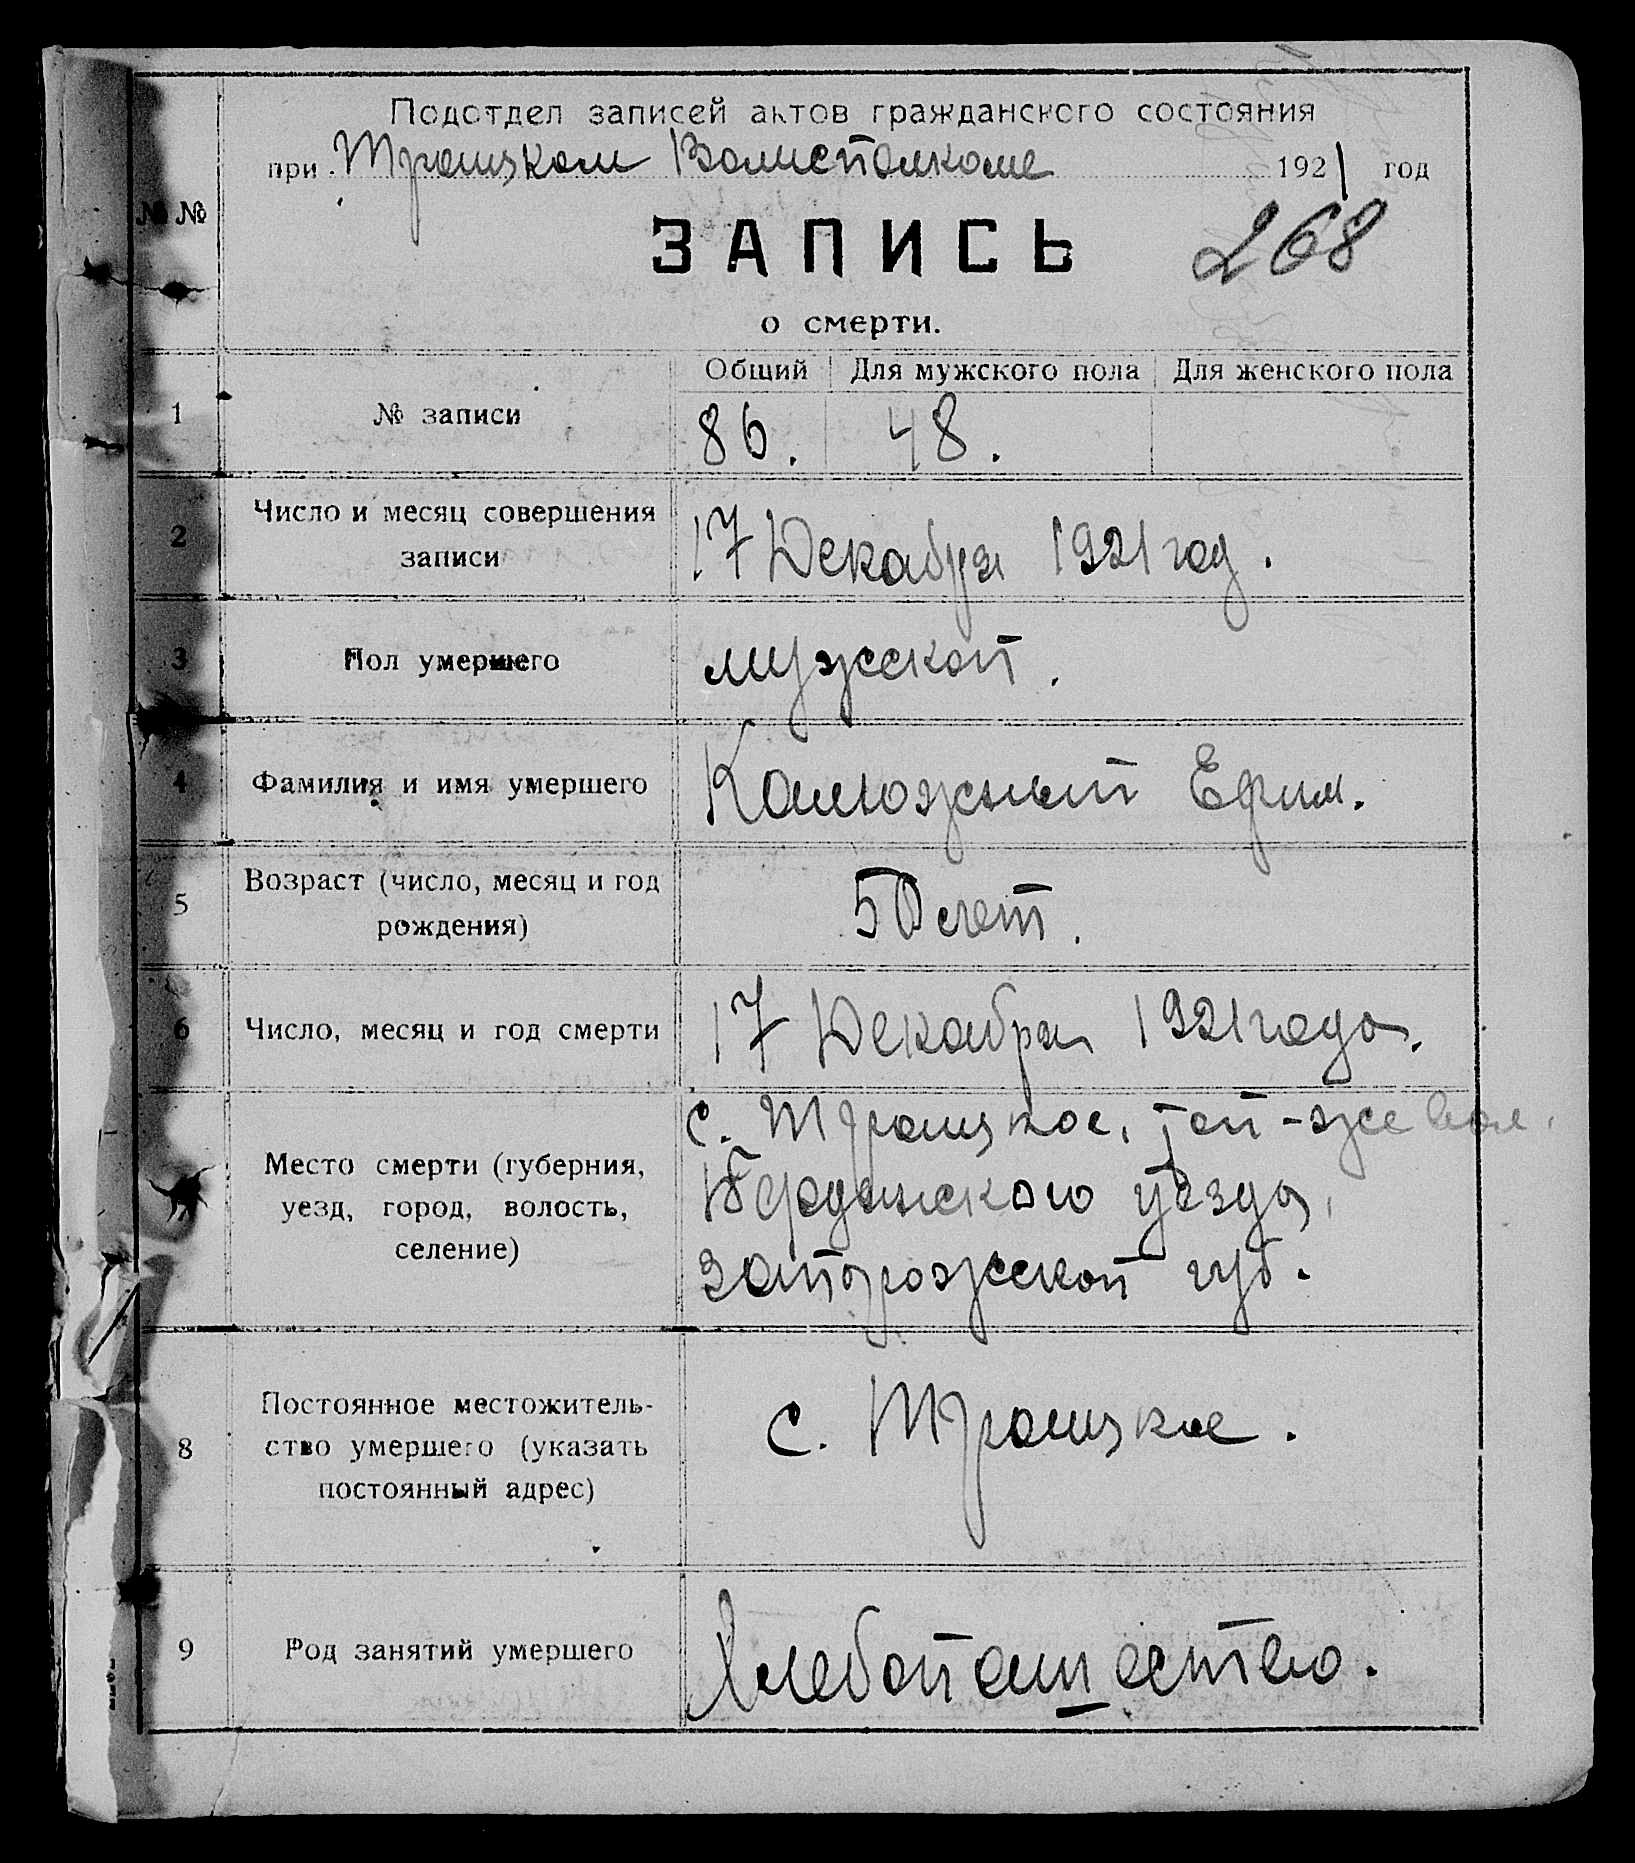 Подотдел записей актов гражданского состояния
при Троицком Волисполкоме 1921 год
№ №
ЗАПИСЬ
268
о смерти.
Общий Для мужского пола Для женского пола
1 № записи 86. 48.
2 Число и месяц совершения
записи
17 Декабря 1921 год.
3 Пол умершего мужской.
4 Фамилия и имя умершего Калюжный Ефим.
5 Возраст (число, месяц и год
рождения)
50 лет.
6 Число, месяц и год смерти 17 Декабря 1921 года.
Место смерти (губерния,
уезд, город, волость,
селение)
с. Троицкое, той-же вол.
Бердянского уезда,
Запорожской губ.
8 Постоянное местожитель-
ство умершего (указать
постоянный адрес)
с. Троицкое.
9 Род занятий умершего Хлебопашество.